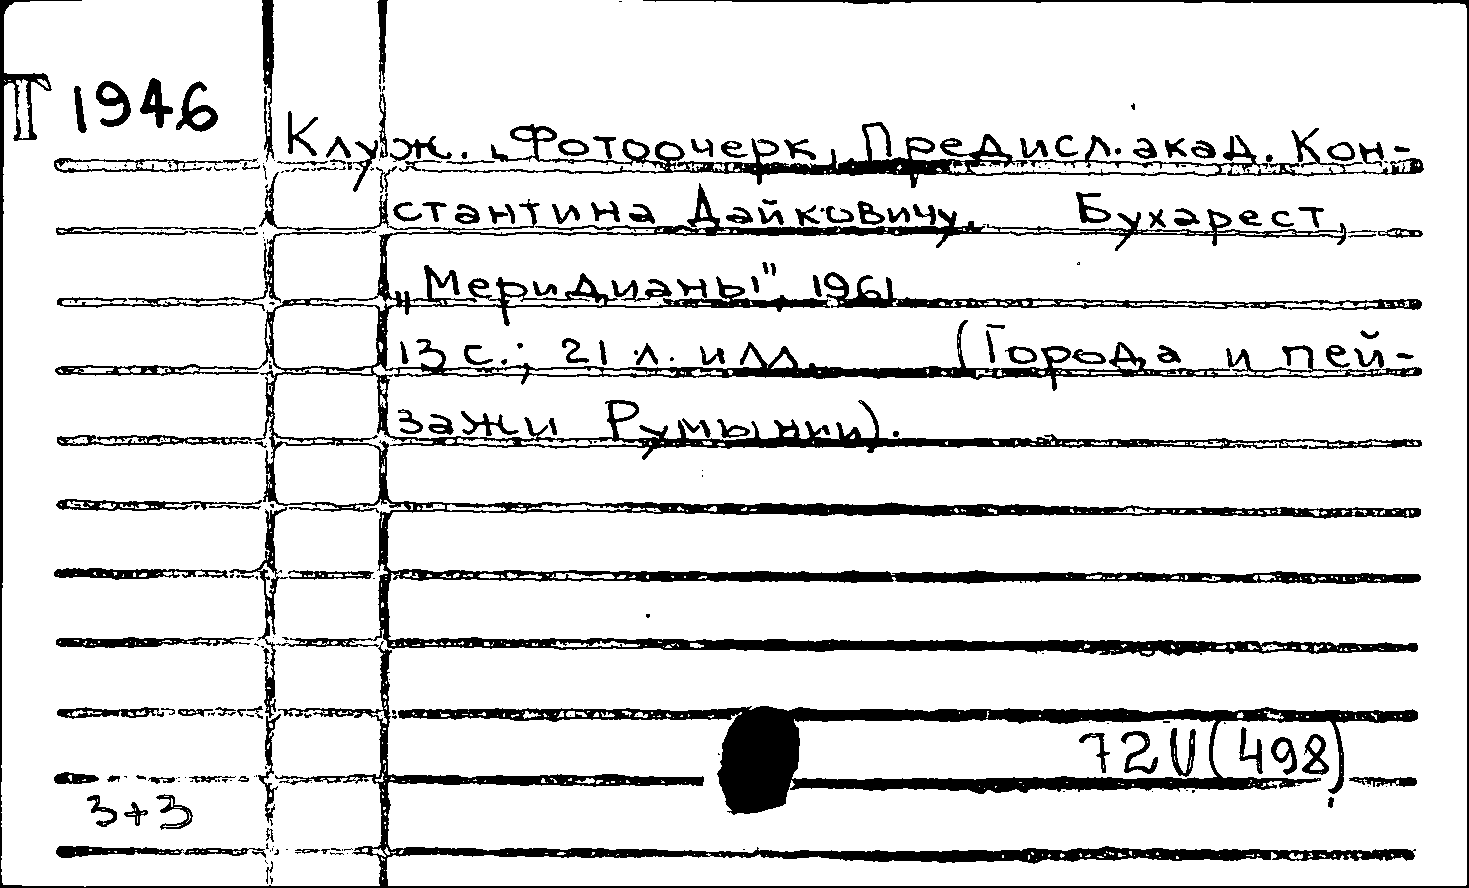 Т 1946
Клуж. „Фотоочерк, Предисл. акад. Кон-
стантина Дайковичу. Бухарест,
„Меридианы", 1961
13 с.; 21 л. илл. (Города и пей-
зажи Румынии).
72U(498)
3+3